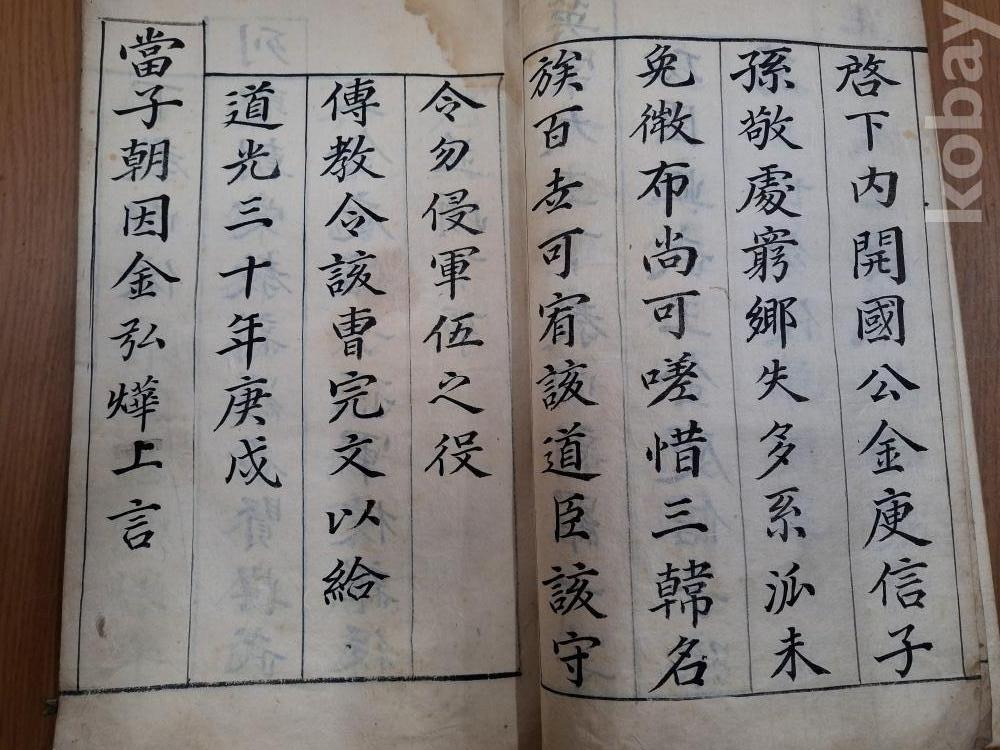 啓下內開國公金庾信子
孫敬處窮鄉失多系派未
免徵布尚可嗟惜三韓名
族百世可宥該道臣該守
令勿侵軍伍之役
傳教令該曹完文以給
道光三十年庚戌
當子朝因金弘燁上言
kobay